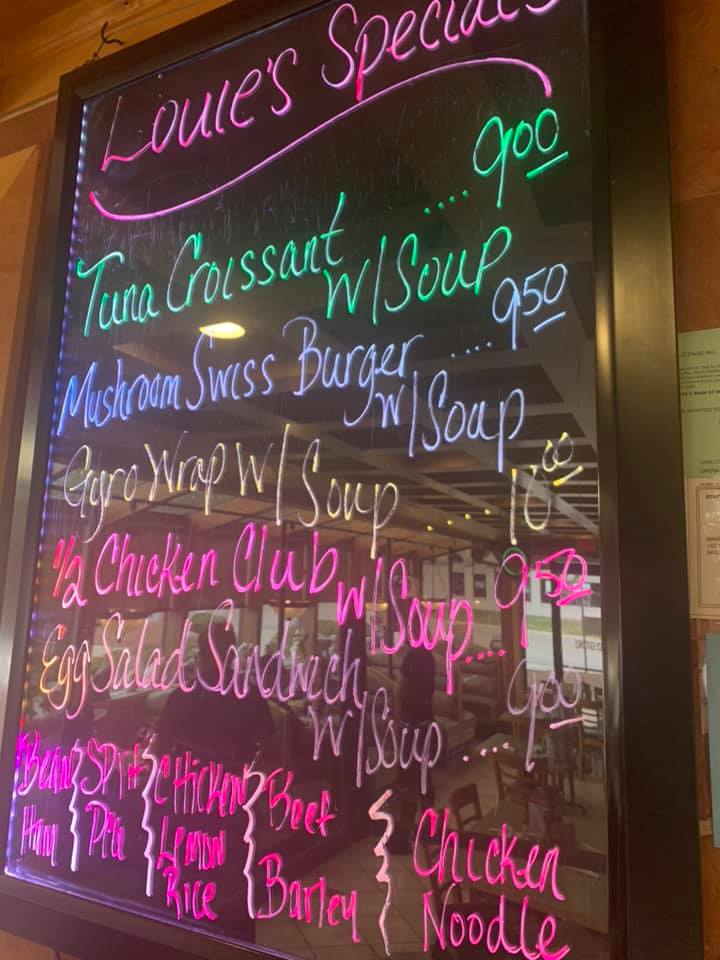 Louie's Specials
Tuna Croissant W/Soup .... 9.00
Mushroom Swiss Burger W/Soup .... 9.50
Gyro Wrap W/Soup .... 10.00
1/2 Chicken Club W/Soup .... 9.50
Egg Salad Sandwich W/Soup .... 9.00
Bean Ham
Split Pea
Chicken Lemon Rice
Beef Barley
Chicken Noodle